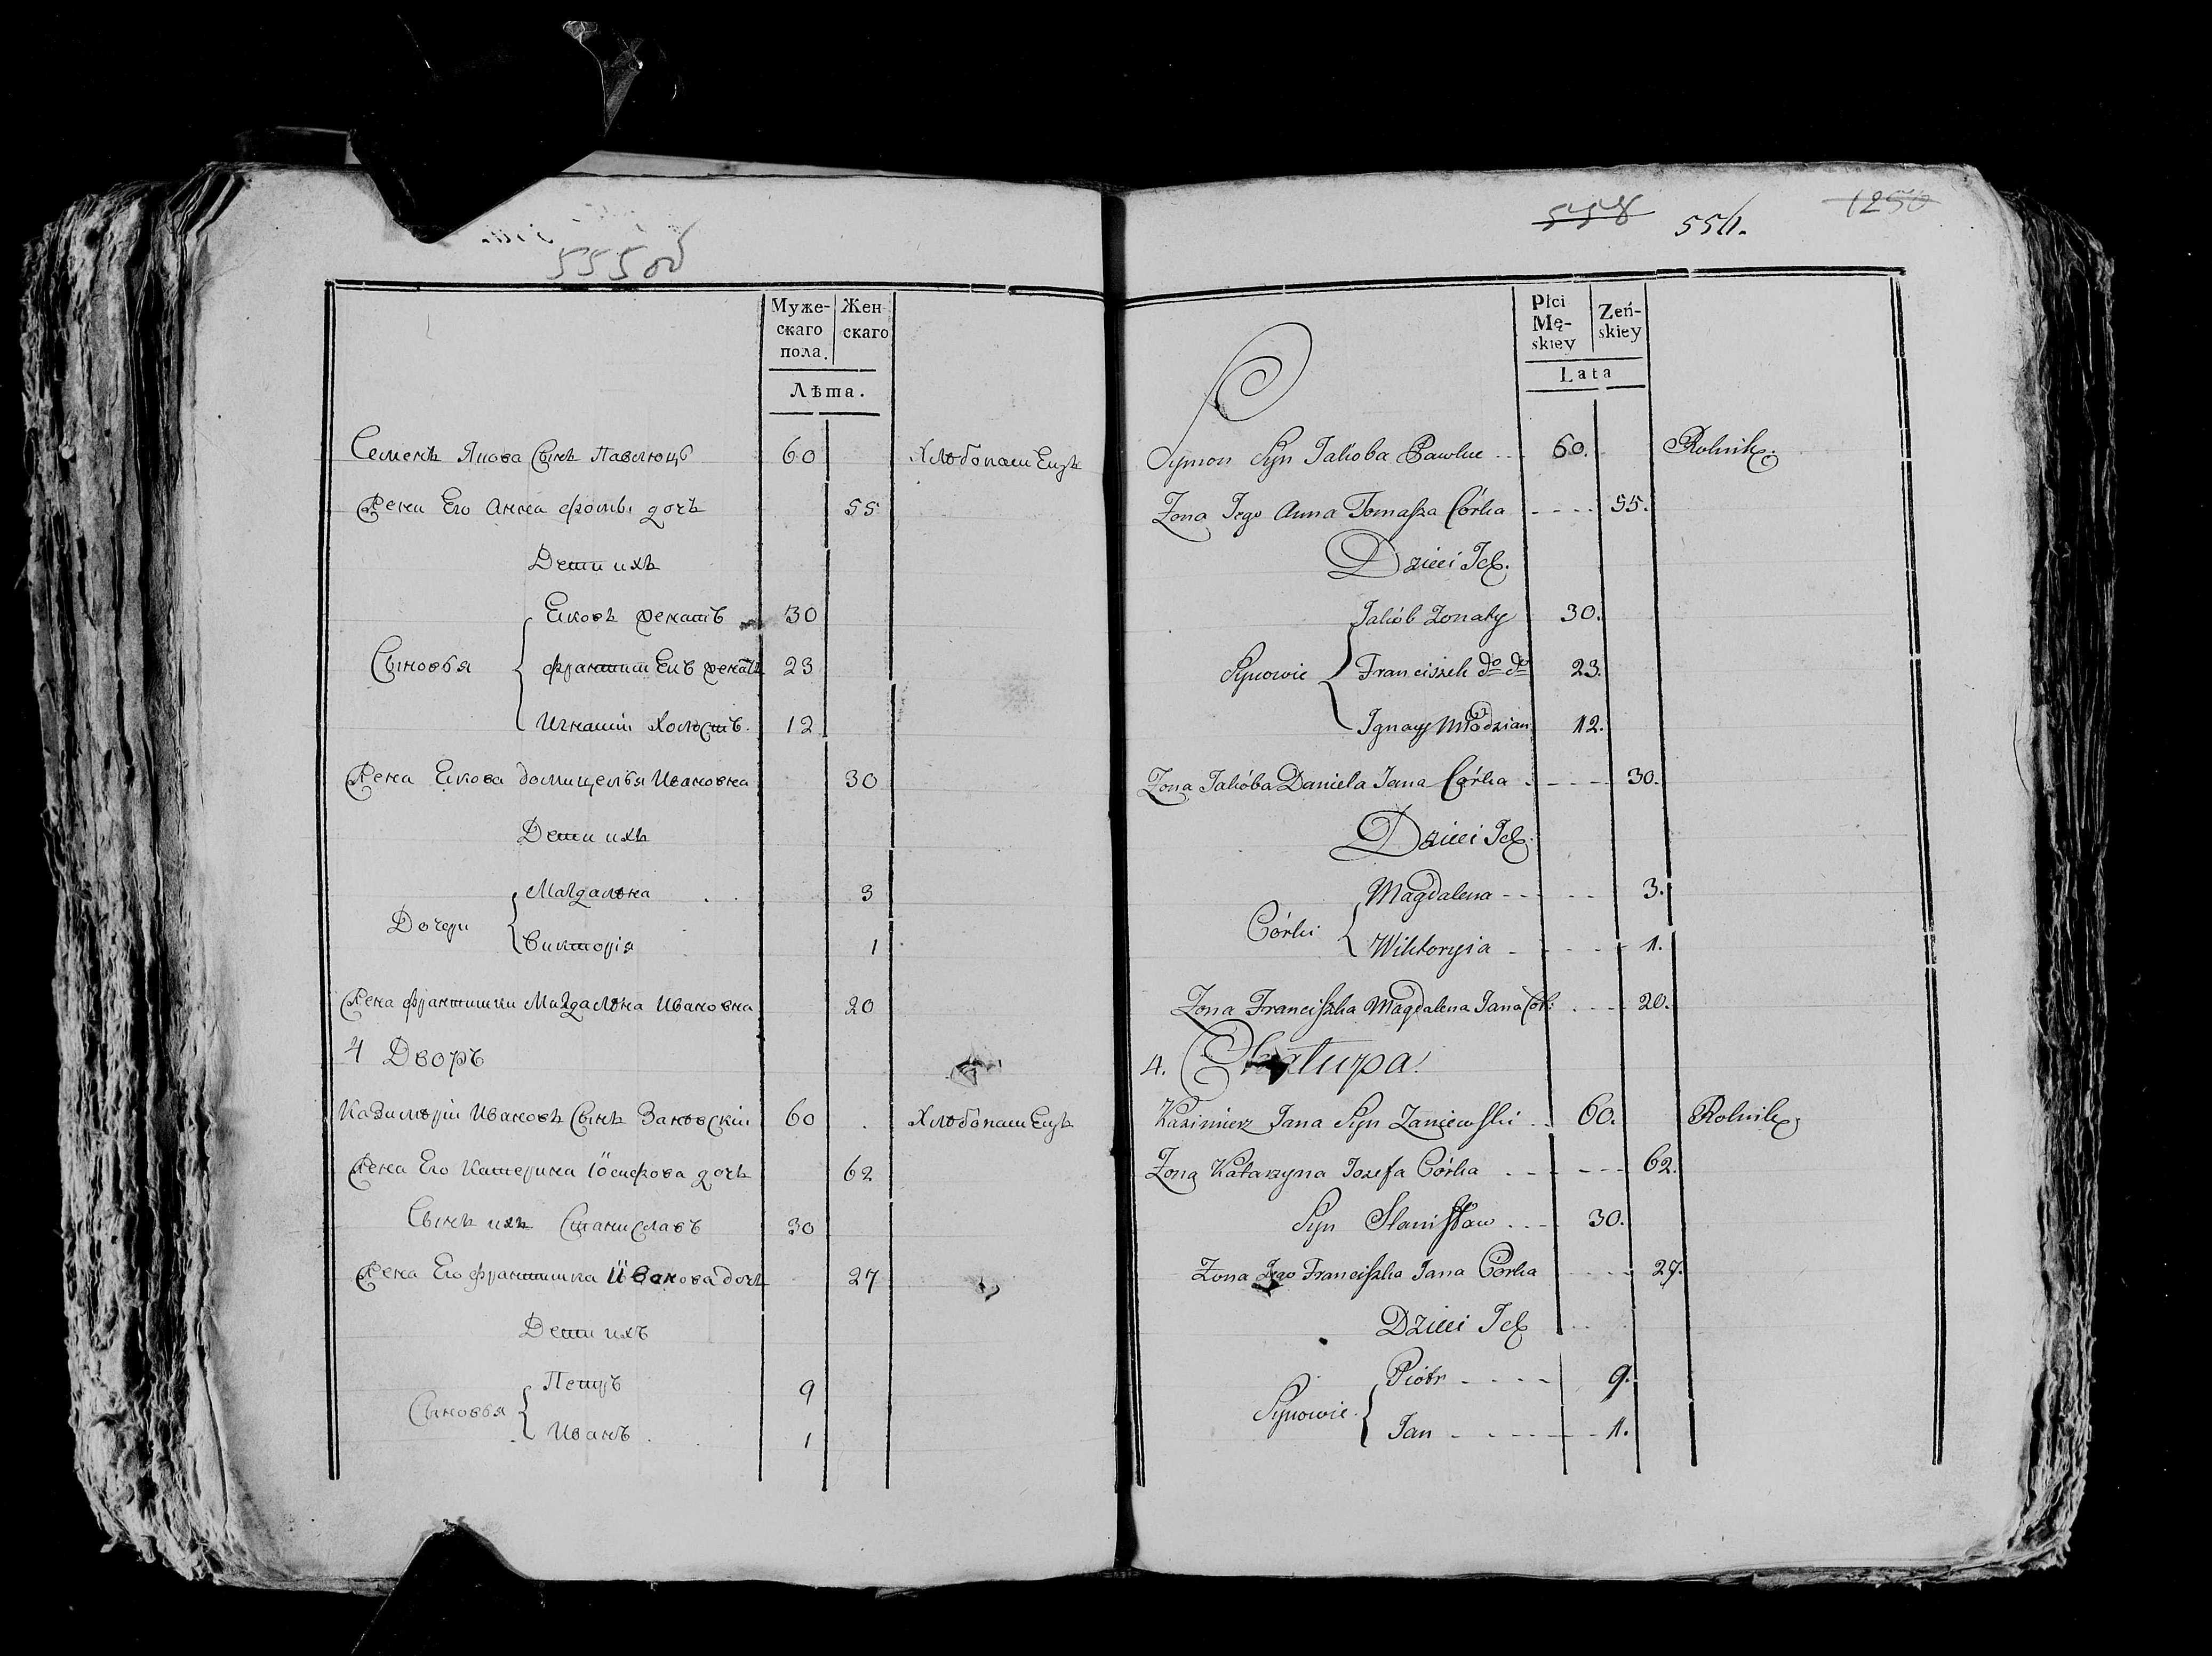 555 об
Муже-
скаго
пола.
Жен-
скаго
Лѣта.
Семенъ Якова Сынъ Павлюцъ 60 Хлѣбопашецъ
Жена Его Анна Фомы дочь 55
Дети ихъ
Сыновья
Еков женатъ 30
Францишекъ женатъ 23
Игнацiй Холостъ. 12
Жена Екова Домицелья Ивановна 30
Дети ихъ
Дочери
Магдалѣна 3
Викторiя 1
Жена Францишки Магдалѣна Ивановна 20
4 Дворъ
Казимѣрiй Ивановъ Сынъ Занѣвскiй 60 Хлѣбопашецъ
Жена Его Катерина Iосифова дочь 62
Сынъ ихъ Станиславъ 30
Жена Его Францишка Иванова дочь 27
Дети ихъ
Сыновья
Петръ 9
Иванъ 1
558 556. 1250
Płci
Mę-
skiey
Żeń-
skiey
Lata
Symon Syn Jakoba Pawluc 60. Rolnik
Zona Jego Anna Tomasza Córka 55.
Dzieci Ich.
Synowie
Jakób Zonaty 30.
Franciszek do do 23.
Ignacy Młodzian 12.
Zona Jakóba Daniela Jana Córka 30.
Dzieci Ich.
Córki
Magdalena 3.
Wiktoryia 1.
Zona Franciszka Magdalena Jana Cór: 20.
4. Chałupa.
Kazimierz Jana Syn Zaniewski 60. Rolnik
Zona Katarzyna Jozefa Córka 62.
Syn Stanisław 30.
Zona Jego Franciszka Jana Córka 27.
Dzieci Ich
Synowie
Piotr 9.
Jan 1.